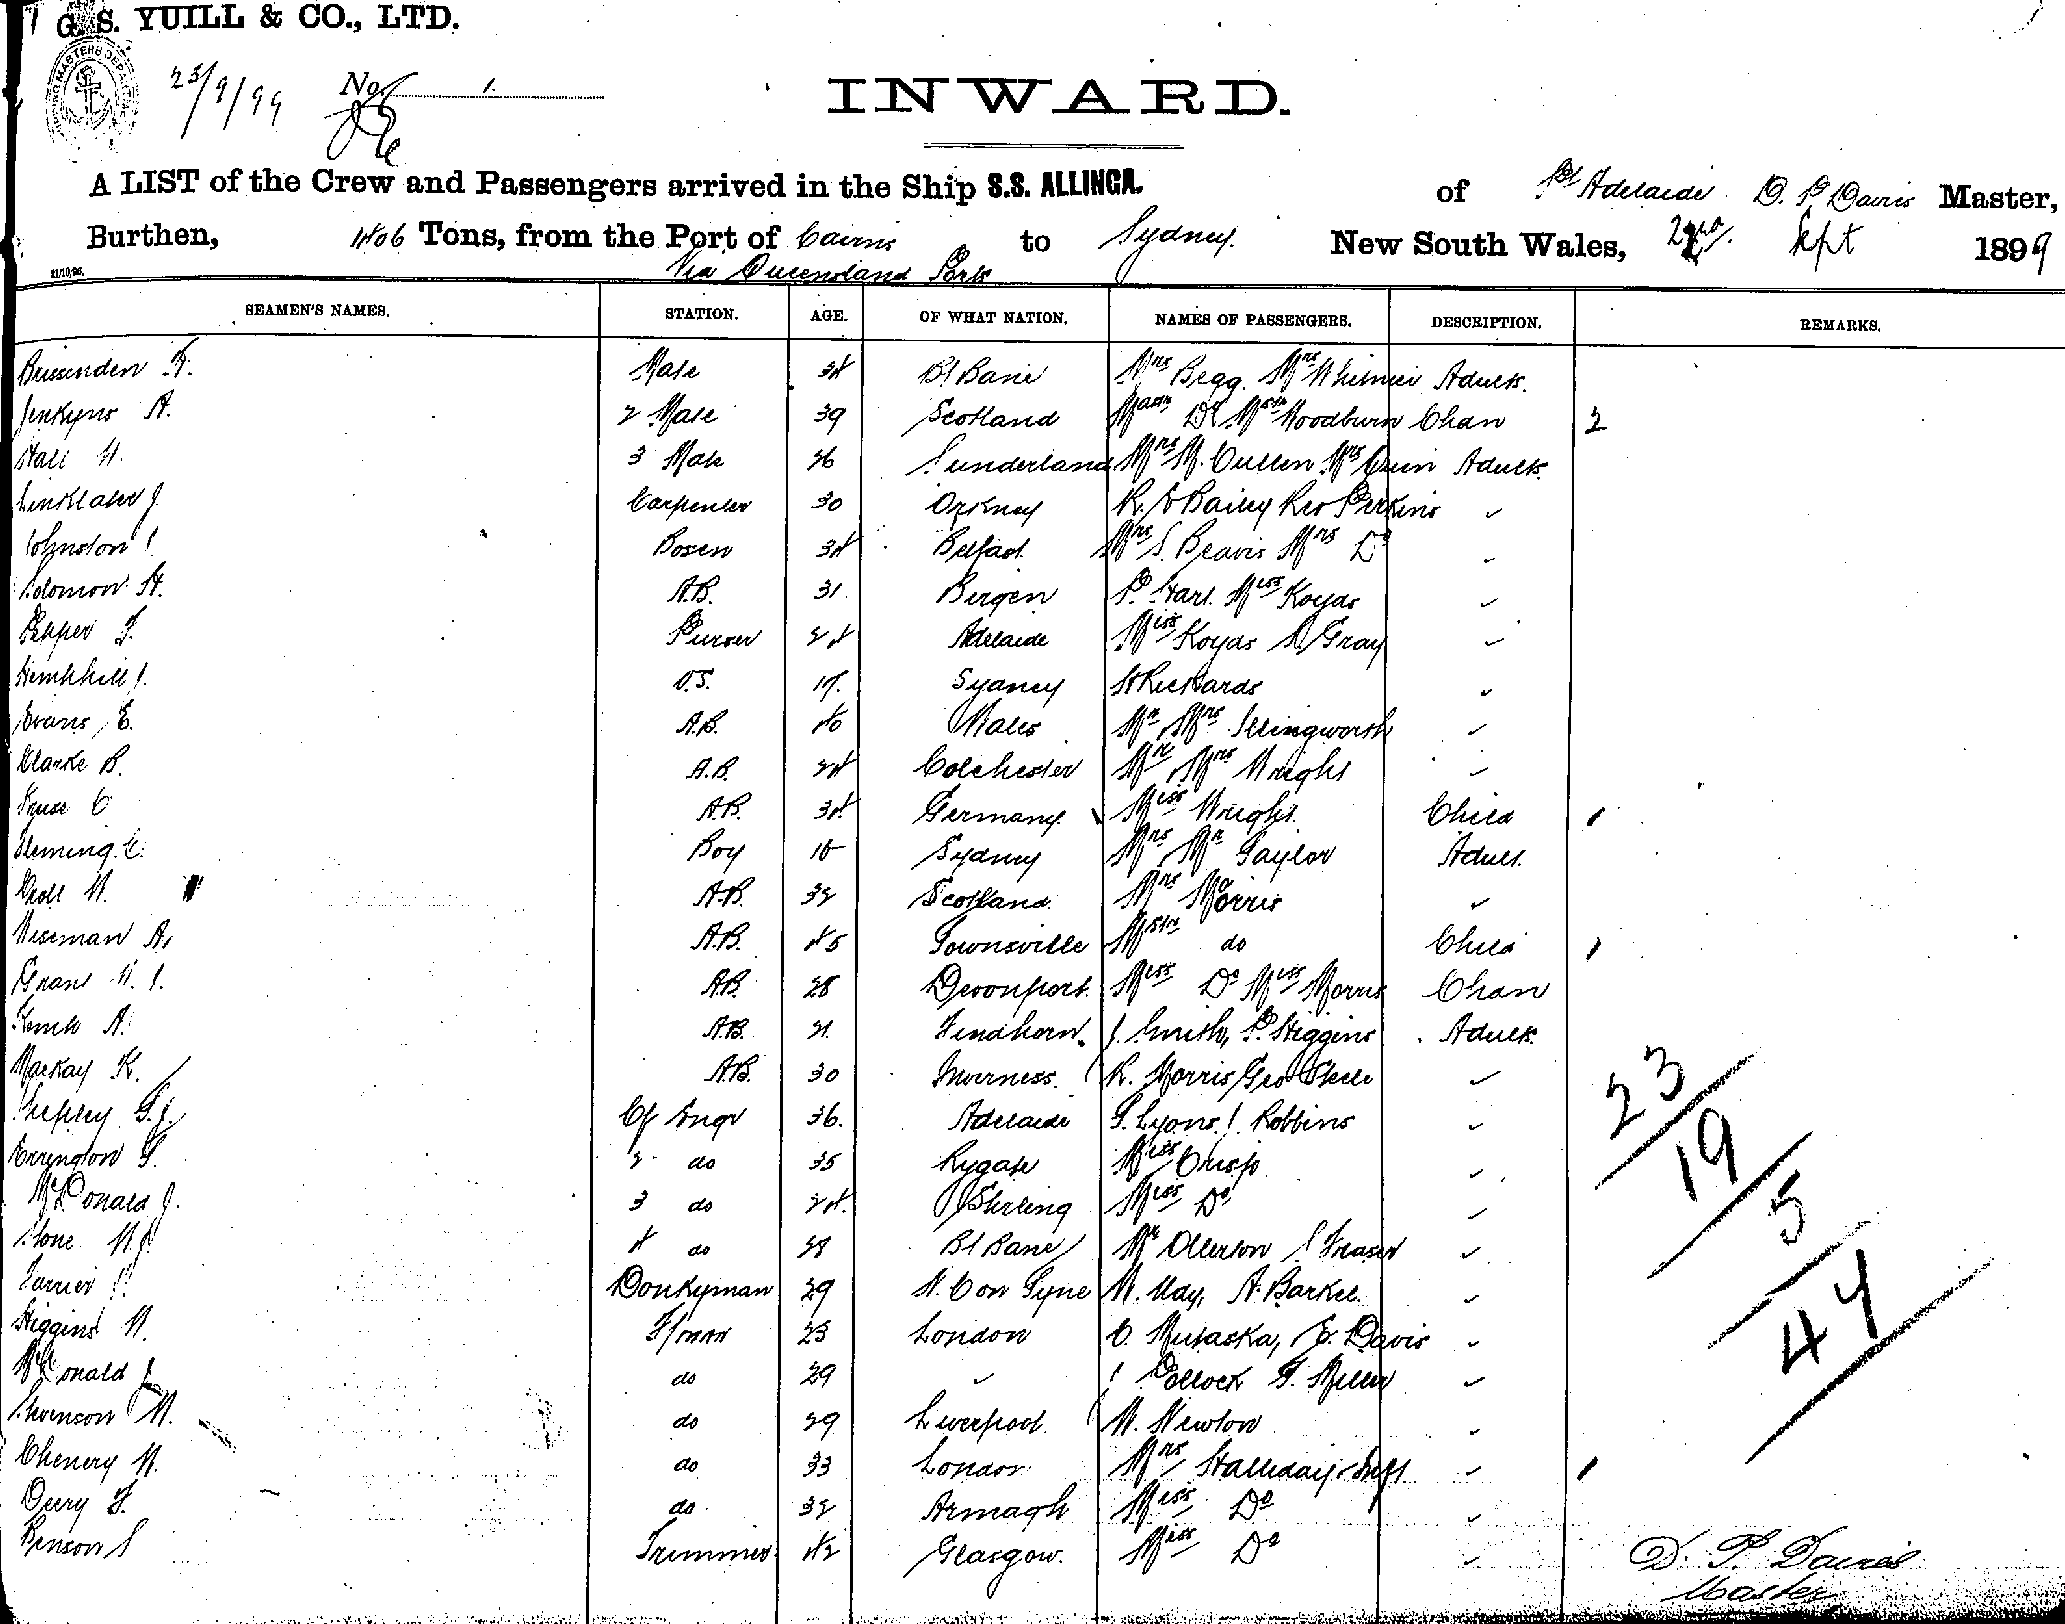 G. S. YUILL & CO., LTD.
23/9/99 No. 1.
INWARD.
A LIST of the Crew and Passengers arrived in the Ship S.S. ALLINGA. of Pt Adelaide D. P. Davis Master,
Burthen, 1406 Tons, from the Port of Cairns to Sydney. New South Wales, 22nd. Sept 1899
Via Queensland Ports
21/10/96.
SEAMEN'S NAMES. STATION. AGE. OF WHAT NATION. NAMES OF PASSENGERS. DESCRIPTION. REMARKS.
F. Mate 34 Mrs Begg. Mrs Adults.
Jenkyns A. 2 Mate 39 Scotland Do Woodburn Chan 2
Hall W. 3 Mate 26 Sunderland Mrs M. Cullen Mrs Adults.
Linklater J. Carpenter 30 Orkney R. Bailey Perkins
Johnston Bosen 34 Belfast Mrs S. Beavis Mrs Do
Solomon H. A.B. 31 Bergen P. Hart. Miss Koyas
Pepper F. Purser 24 Adelaide Miss Koyas Gray
Hemphill J. O.S. 17. Sydney Rickards
Evans, E. A.B. 40 Wales Mr Mrs Illingworth
Clarke B. A.B. 24 Colchester Mr Mrs Wright
Kruse C A.B. 34 Germany Miss Wright. Child 1
Fleming. C. Boy 16 Sydney Mrs Mr Taylor Adult.
Croll W. A.B. 32 Scotland. Mrs Morris
Wiseman A. A.B. 45 Townsville Mstr do Child 1
Grant W. J. A.B. 28 Devonport. Miss Do Miss Morris Chan
A. A.B. 21. Findhorn. J. Smith, P. Higgins Adults.
Mackay K. A.B. 30 Inverness. R. Morris Geo Steele
Shepley Cf Engr 36. Adelaide Lyons. J. Robbins
Errington G. 2 do 35 Rygate Miss Crisp
McDonald J. 3 do 24. Stirling Miss Do
Stone W. J. 4 do 28 Mr Ollerton Fraser
Farrier Donkyman 29 N. C on Tyne W. Uday, A. Barkel
Higgins W. F/man 23 London C. Mutaska, E. Davis
McDonald J do 29 Pollock Miller
Swenson W. do 29 Liverpool W. Newton
Chenery W. do 33 London Mrs Halliday Inft 1
Deery F. do 32 Armagh Miss Do
Benson S Trimmer 42 Glasgow. Miss Do
23
19
5
44
D. P. Davis
Master